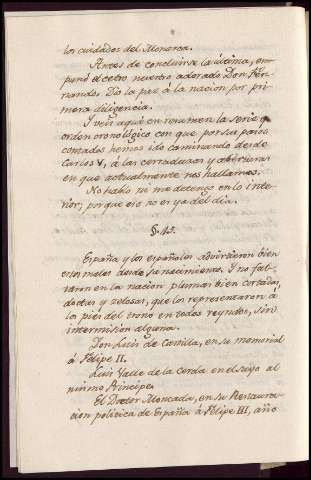 los cuidados del Monarca.
Antes de concluirse la última, em-
puñó el cetro nuestro adorado Don Fer-
nando. Dió la paz á la nacion por pri-
mera diligencia.
Y veis aquí en resumen la serie y
orden cronológico con que por sus pasos
contados hemos ido caminando desde
Carlos V, á las cerraduras y aberturas
en que actualmente nos hallamos.
No hablo ni me detengo en lo inte-
rior; porque eso no es ya del dia.
§. 13.
España y los españoles advirtieron bien
estos males desde su nacimiento. Y no fal-
taron en la nacion plumas bien cortadas,
doctas y zelosas, que los representaron á
los pies del trono en todos reynados, sin
intermision alguna.
Don Luis de Castilla, en su memorial
á Felipe II.
Luis Valle de la Cerda en el suyo al
mismo Príncipe.
El Doctor Moncada, en su Restaura-
cion política de España á Felipe III, año